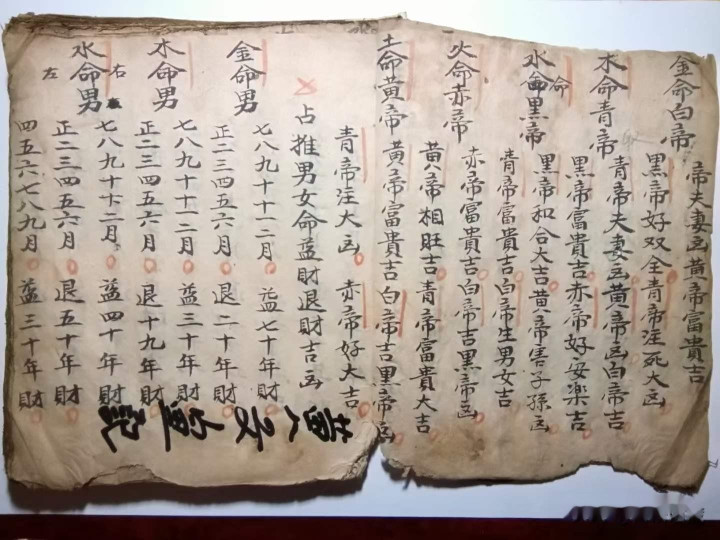 金命白帝 帝夫妻凶黃帝富貴吉
黑帝好双全青帝注死大凶
木命青帝 青帝夫妻凶黃帝凶白帝吉
黑帝富貴吉赤帝好安樂吉
水命黑帝 命 黑帝和合大吉黃帝害子孫凶
青帝富貴吉白帝生男女吉
火命赤帝 赤帝富貴吉白帝吉黑帝凶
黃帝相旺吉青帝富貴大吉
土命黃帝 黃帝富貴吉白帝吉黑帝凶
青帝注大凶 赤帝好大吉
占推男女命益財退財吉凶
金命男 七八九十十一二月 益七十年財
正二三四五六月 退二十年財
木命男 七八九十十一二月 益三十年財
正二三四五六月 退十九年財
右
水命男 七八九十十二月 益四十年財
左
正二三四五六月 退五十年財
四五六七八九月 益三十年財